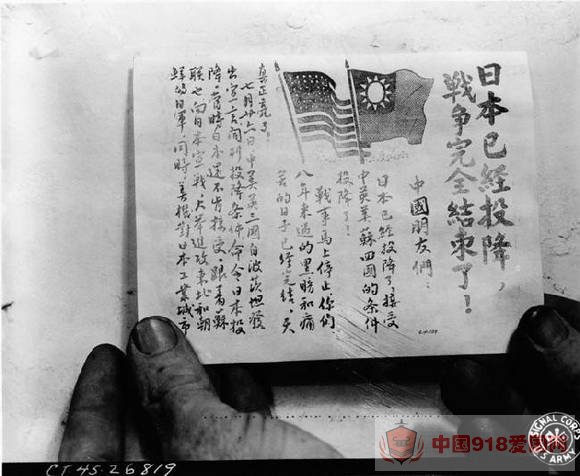 日本已經投降,
戰爭完全結束了!
中國朋友們:
日本已經投降了,接受
中英美蘇四國的条件
投降了!
戰事馬上停止你們
八年來過的黑暗和痛
苦的日子已經完結,天
真正亮了。
七月廿六日中美英三國自波茨坦發
出宣言,開列投降条件命令日本投
降。當時日本還不肯接受,跟着蘇
联也向日本宣戰,大举進攻東北和朝
鮮的日軍,同時,美機對日本工業城市
CT-45-26819
SIGNAL CORPS
U.S. ARMY
中国918爱国网